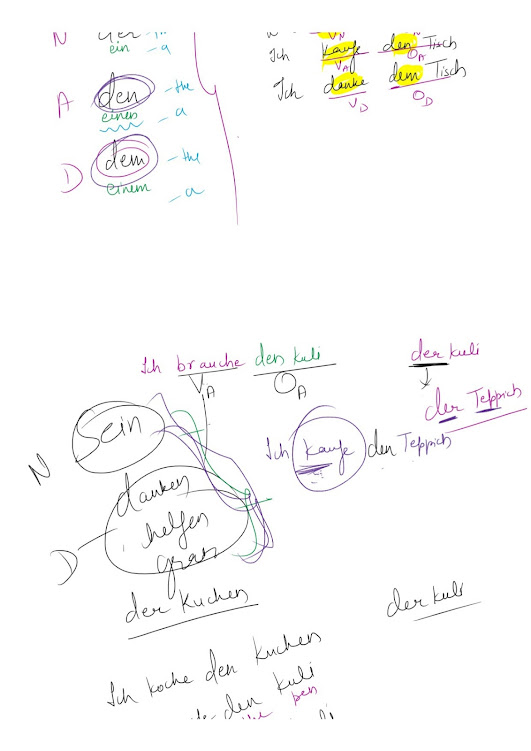 N der - the
ein - a
A den - the
einen - a
D dem - the
einem - a
Ich kaufe den Tisch
V_A O_A
Ich danke dem Tisch
V_D O_D
Ich brauche den kuli
V_A O_A
der kuli
der Teppich
N Sein
Ich kaufe den Teppich
D danken
helfen
der Kuchen
der kuli
Ich koche den kuchen
den kuli
pen